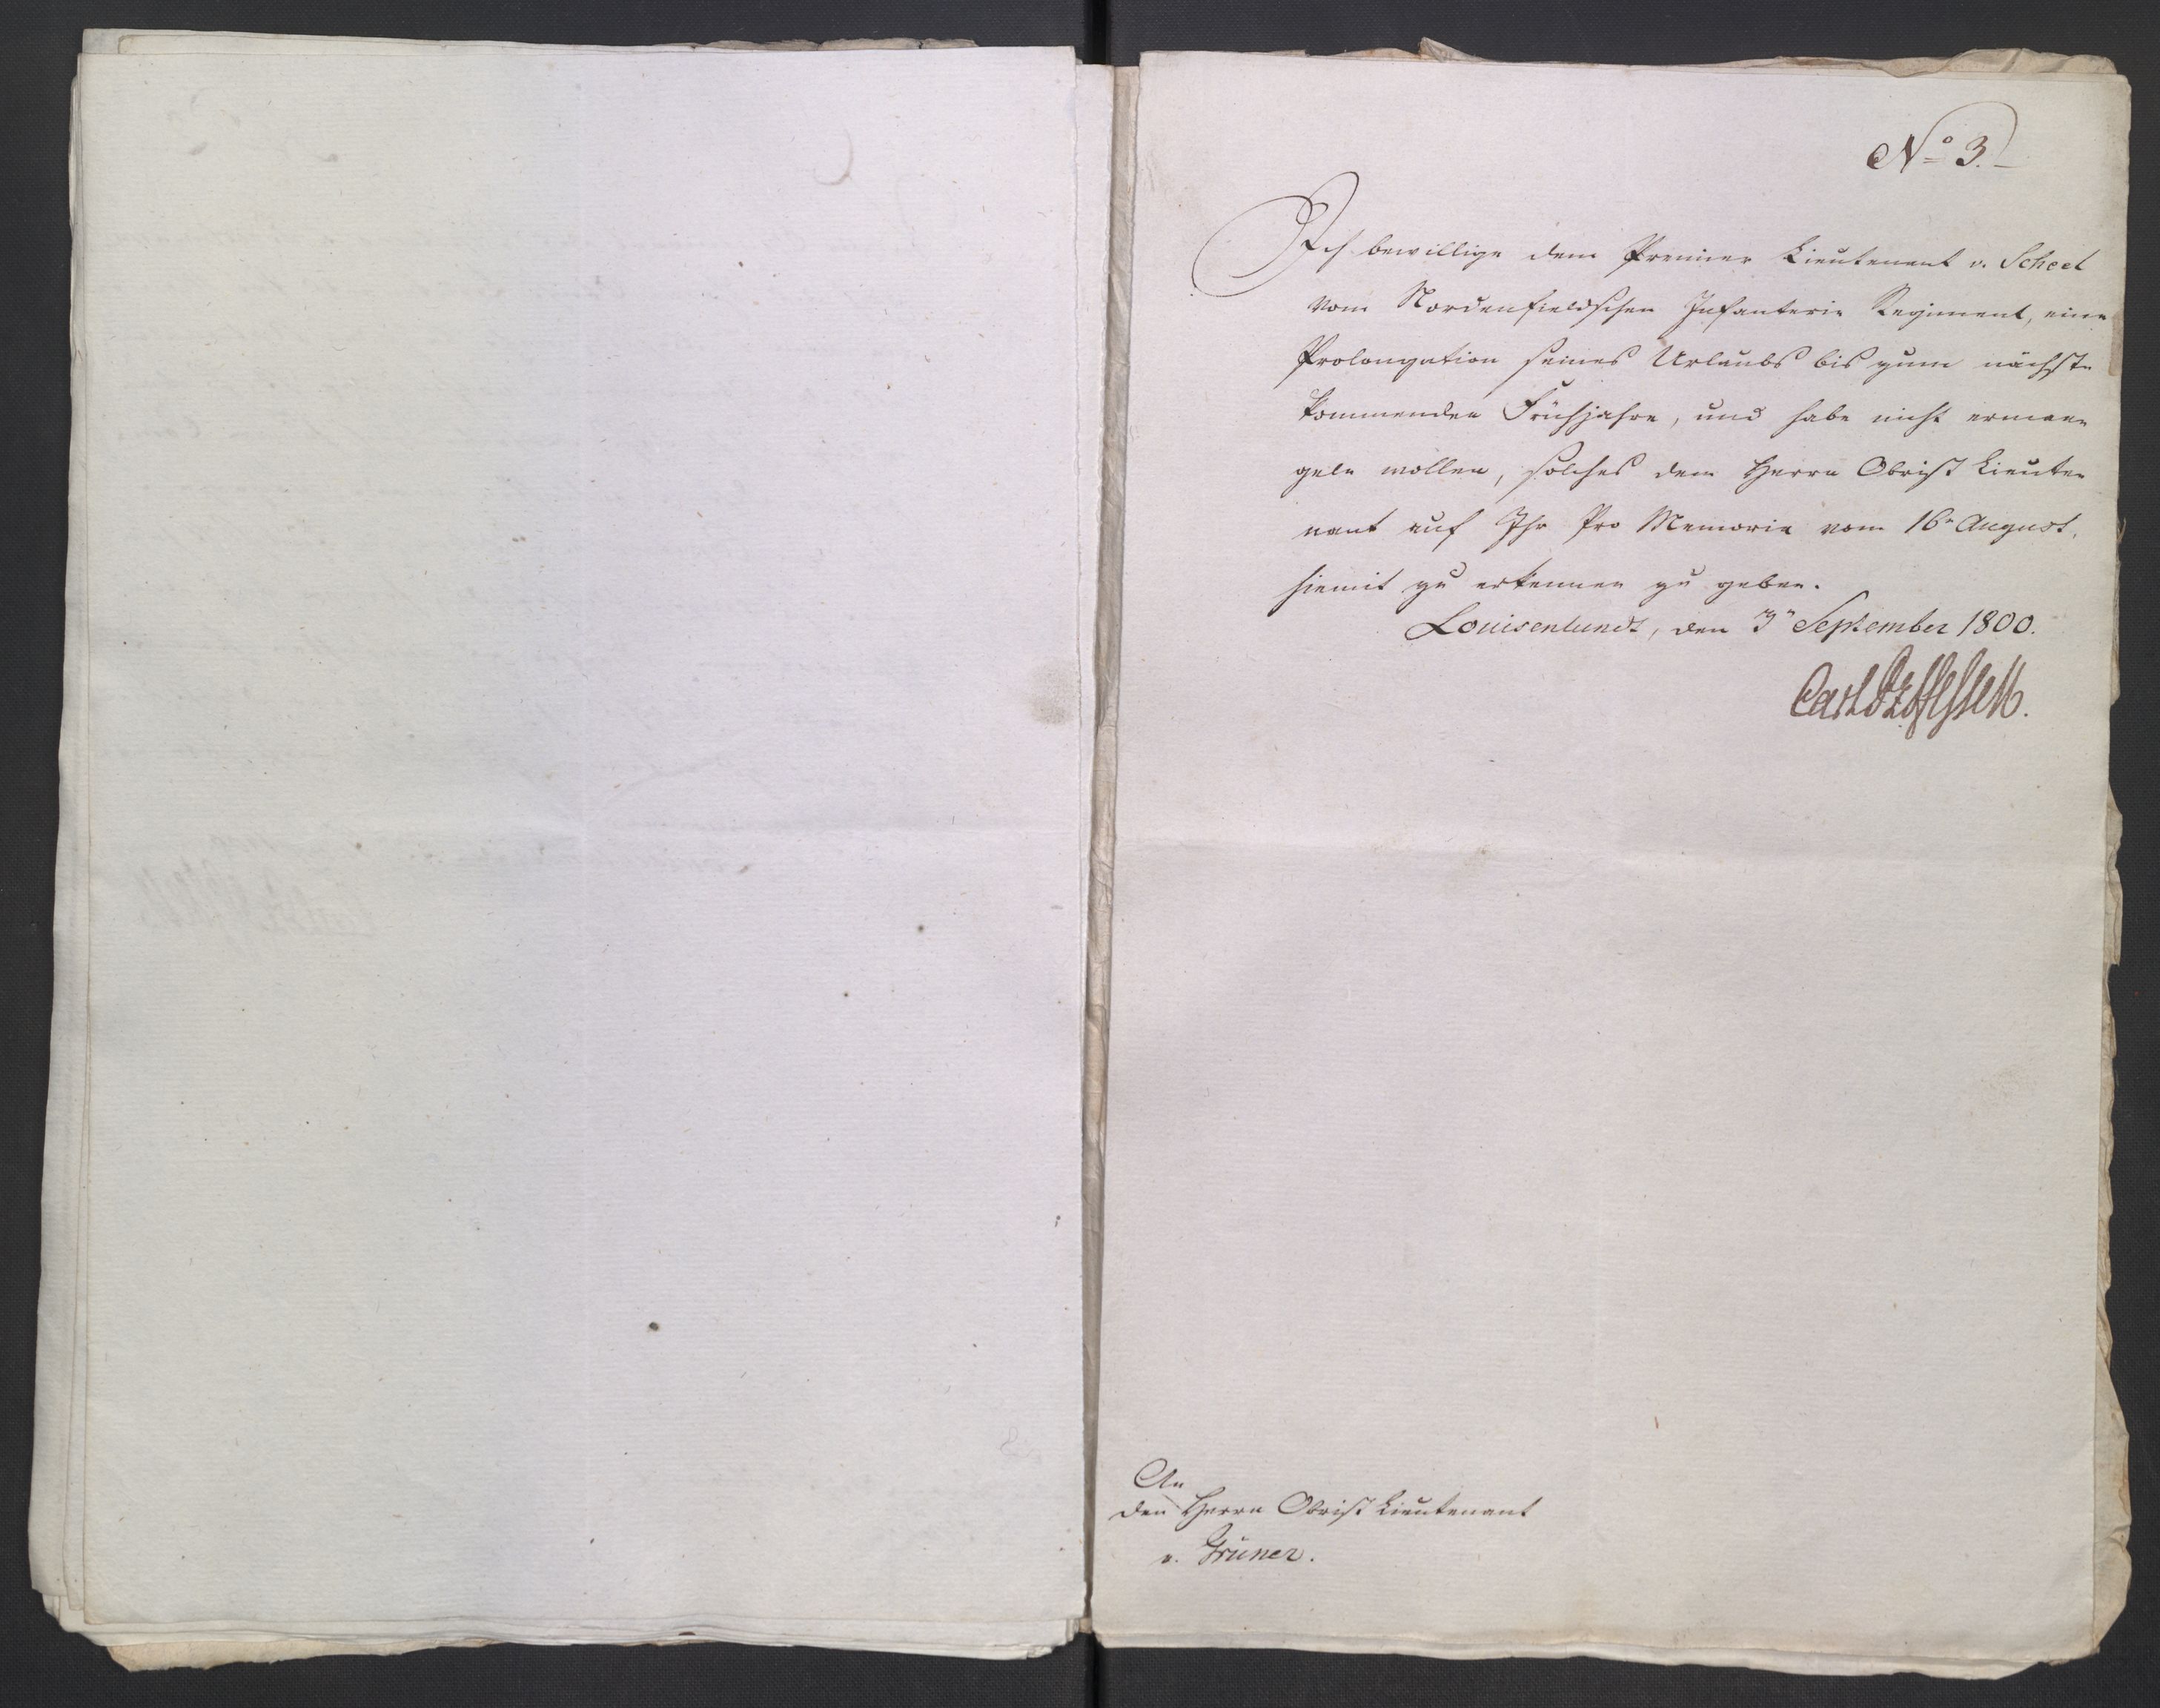 No 3.
Ich bewillige dem Premier Lieutenant v. Scheel
vom Nordenfieldschen Infanterie Regiment, eine
Prolongation seines Urlaubs bis zum nächst
kommenden Frühjahre, und habe nicht erman
geln wollen, solches dem Herrn Obrist Lieute
nant auf Ihr Pro Memoria vom 16n August,
hiemit zu erkennen zu geben.
Louisenlundt, den 3n September 1800.
Carl PzHessen.
An
den Herrn Obrist Lieutenant
v. Grüner.